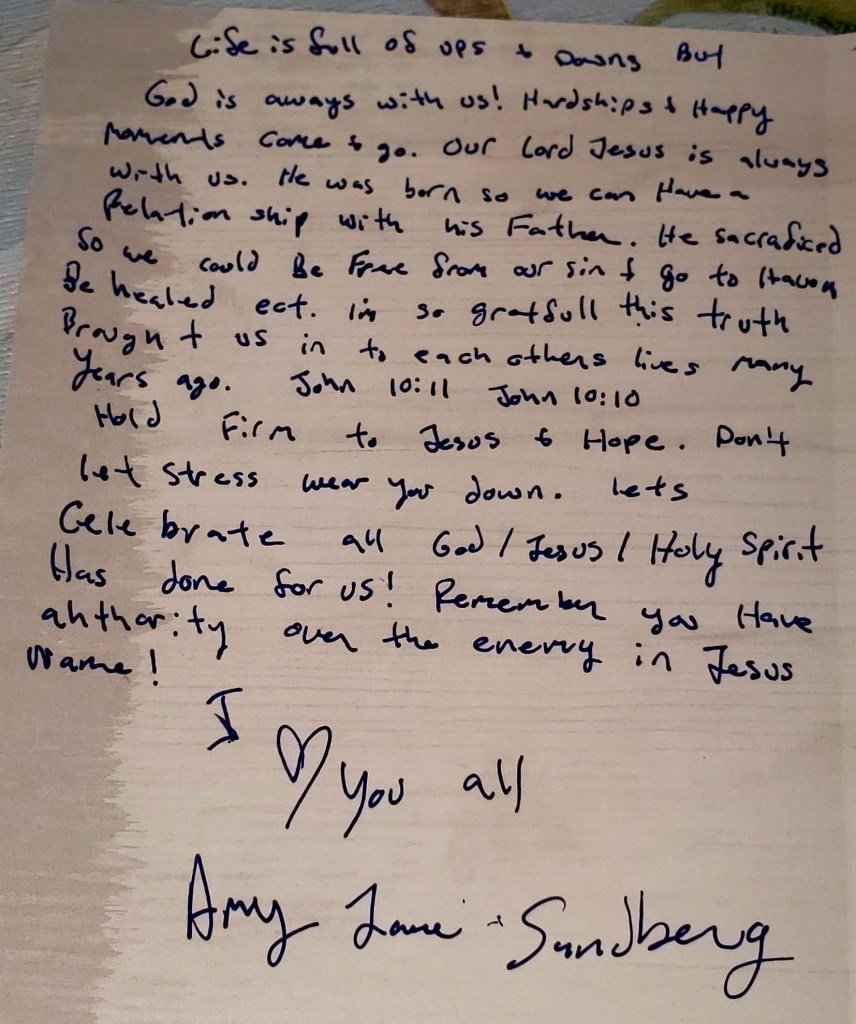 Life is full of ups & Downs But
God is aways with us! Hardships & Happy
moments come & go. Our Lord Jesus is always
with us. He was born so we can Have a
Relation ship with his Father. He sacradiced
So we could Be Free from our sin & go to Heaven
Be healed ect. I'm so gratfull this truth
Brought us in to each others lives many
years ago. John 10:11 John 10:10
Hold Firm to Jesus & Hope. Don't
let stress wear you down. lets
Cele brate all God / Jesus / Holy Spirit
Has done for us! Remember you Have
ahthority over the enemy in Jesus
Name!
I ♡ you all
Amy Sundberg